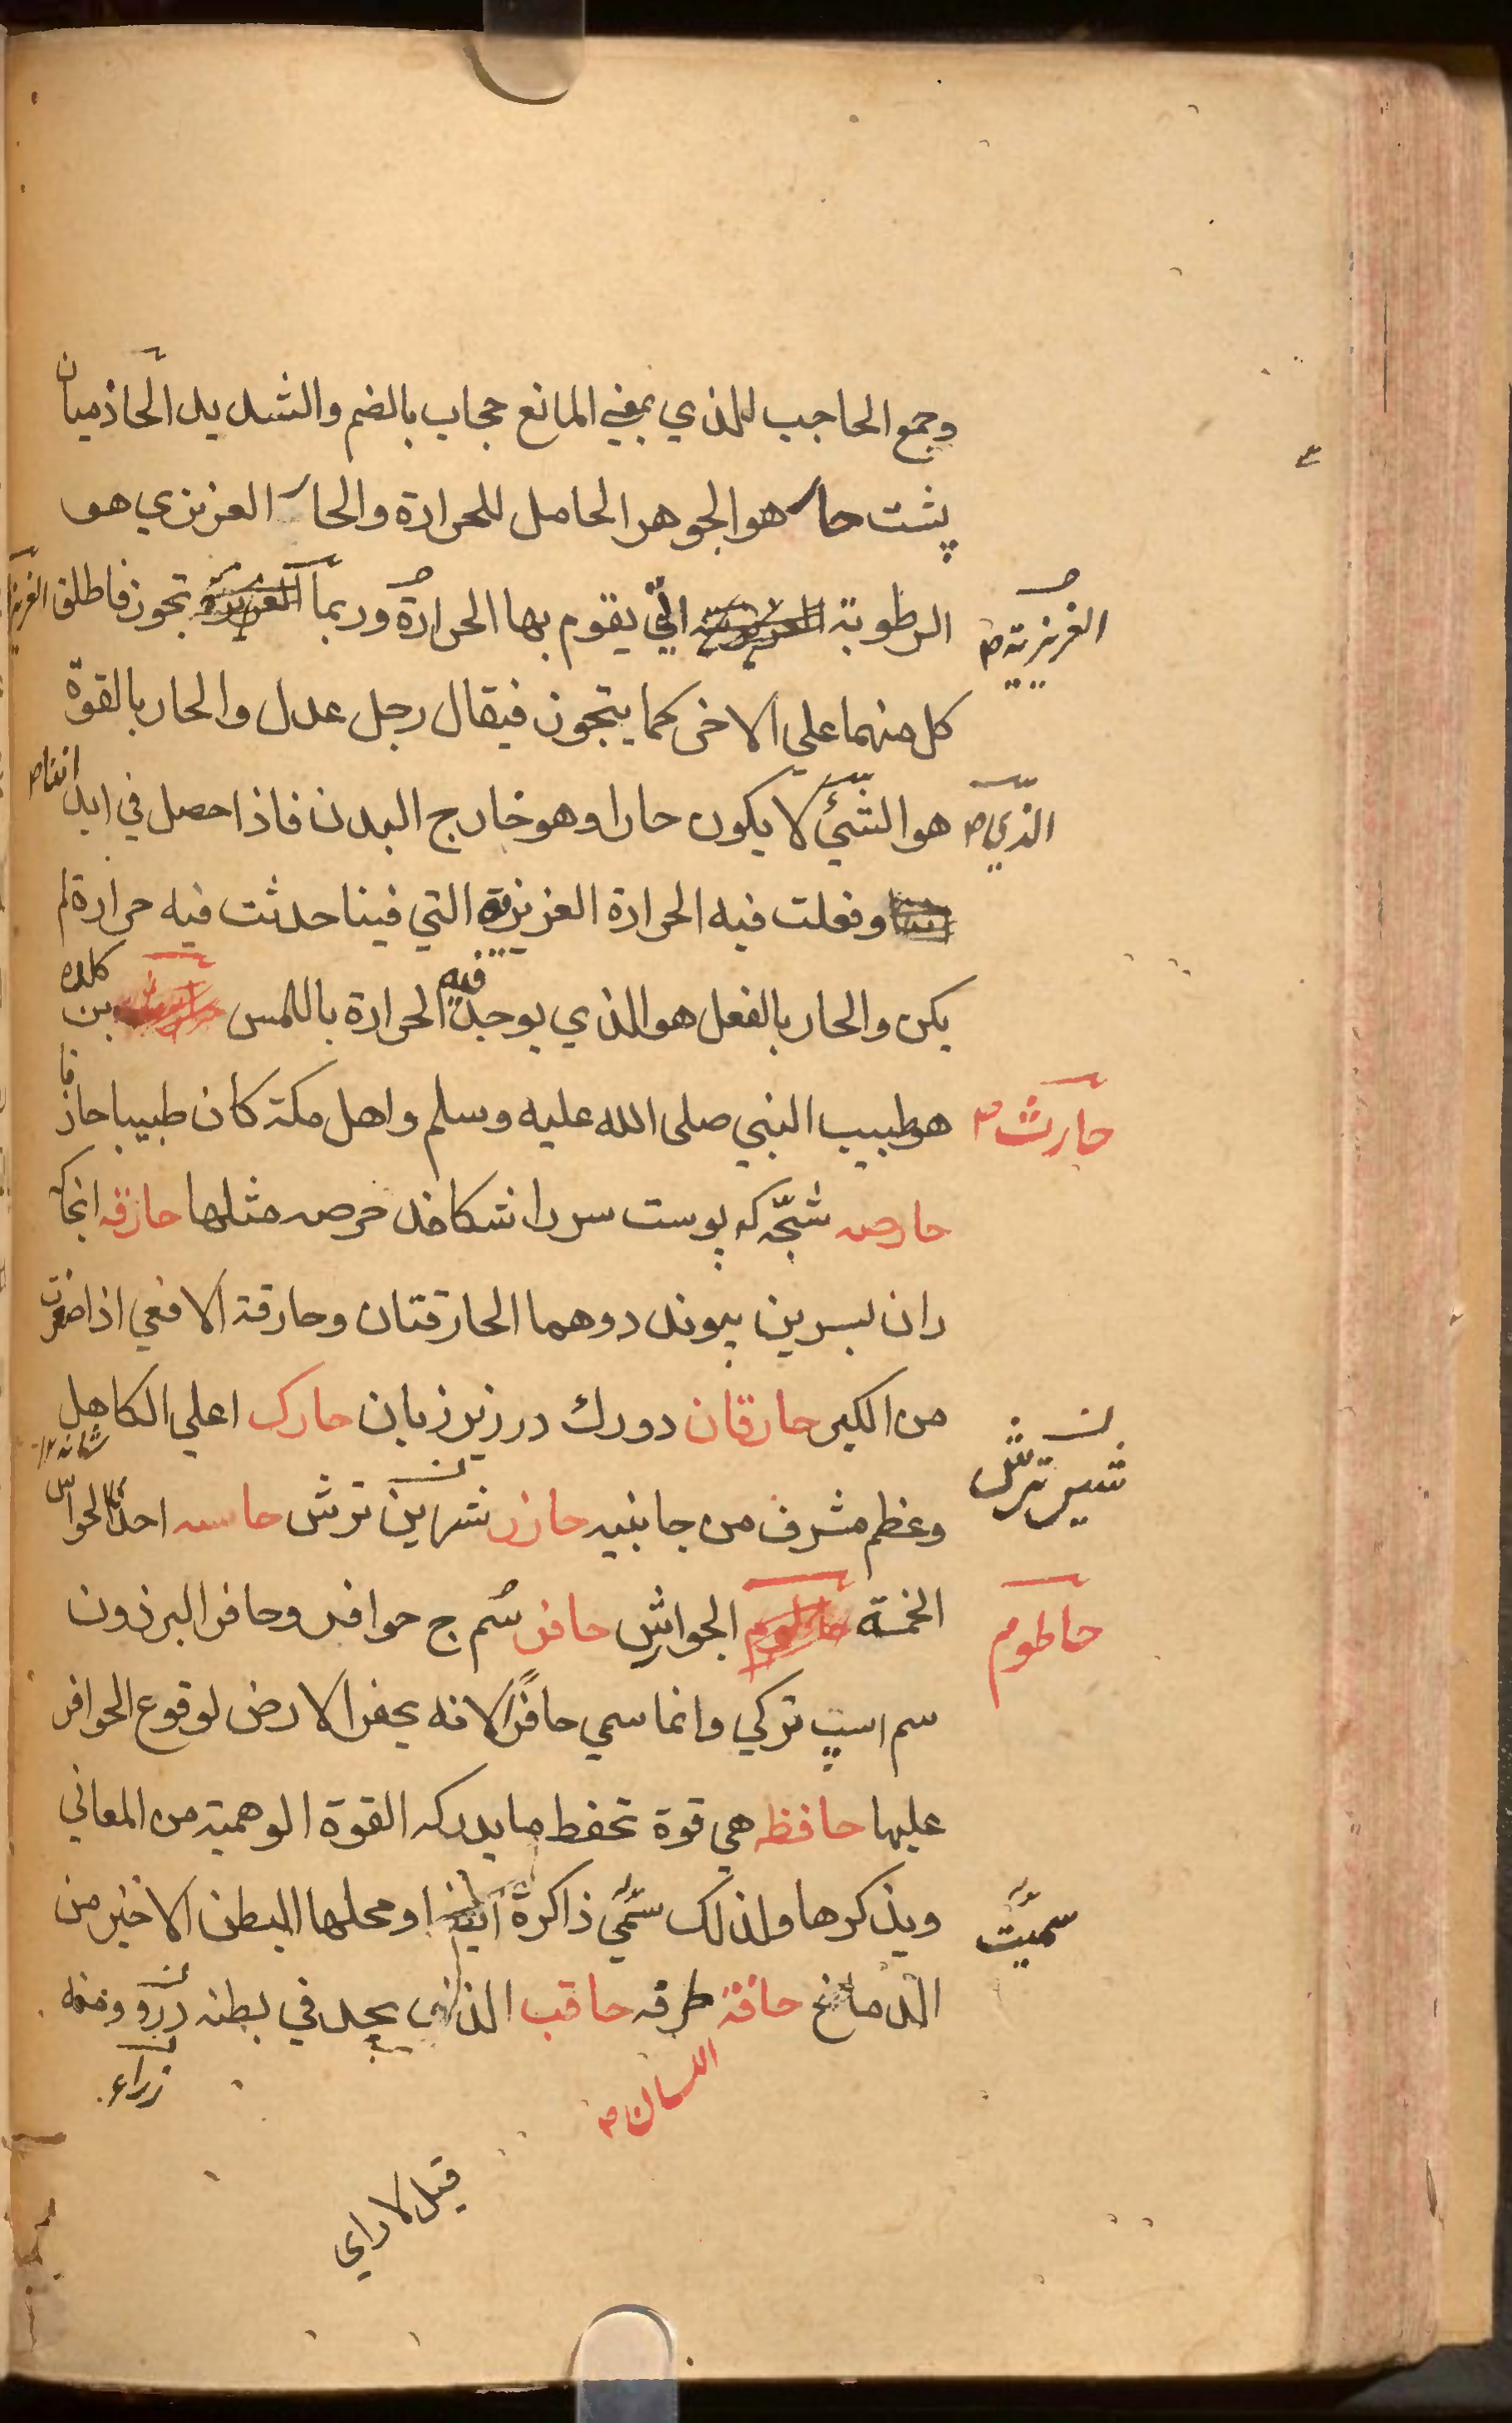 وجمع الحاجب للذي بمعني المانع حجاب بالضم والتشديد الحاذميان
پشت حار هو الجوهر الحامل للحرارة والحار الغريزي هو
الرطوبة الغريزية صح التي يقوم بها الحرارة وربما تجوز فاطلق الغريزي
كل منهما على الاخر كما يتجوز فيقال رجل عدل والحار بالقوة
هو الشئ الذي صح لا يكون حارا وهو خارج البدن فاذا حصل في ابداننا صح
وفعلت فيه الحرارة الغريزية التي فينا حدثت فيه حرارة لم
يكن والحار بالفعل هو الذي يوجد فيه الحرارة باللمس بن كلده
حارث صح هو طبيب النبي صلى الله عليه وسلم واهل مكة كان طبيبا حاذقا
حارصه شجّه كه پوست سر را شكافد حرصه مثلها حارقه انجا كه
ران بسرين پيوندد وهما الحارقتان وحارقة الافعي اذا صغرت
من الكبر حارقان دو رك در زير زبان حارك اعلي الكاهل
شانه ١٢
وعظم مشرف من جانبيه حازر شراين ترش حاسه احد الحواس
شير ترش
الخمسة حاطوم الجوارش حافر سُم ج حوافر وحافر البرذون
سم اسپ تركي وانما سمي حافرًا لانه يحفر الارض لوقوع الحوافر
عليها حافظه هي قوة تحفط ما يدركه القوة الوهمية من المعاني
ويذكرها ولذلك سمّي ذاكرة ايضا ومحلها البطن الاخير من
سميّت
الدماغ حافة طرفه حاقب الذي يجد في بطنه ومنه
اللسان صح
قيل لا راي